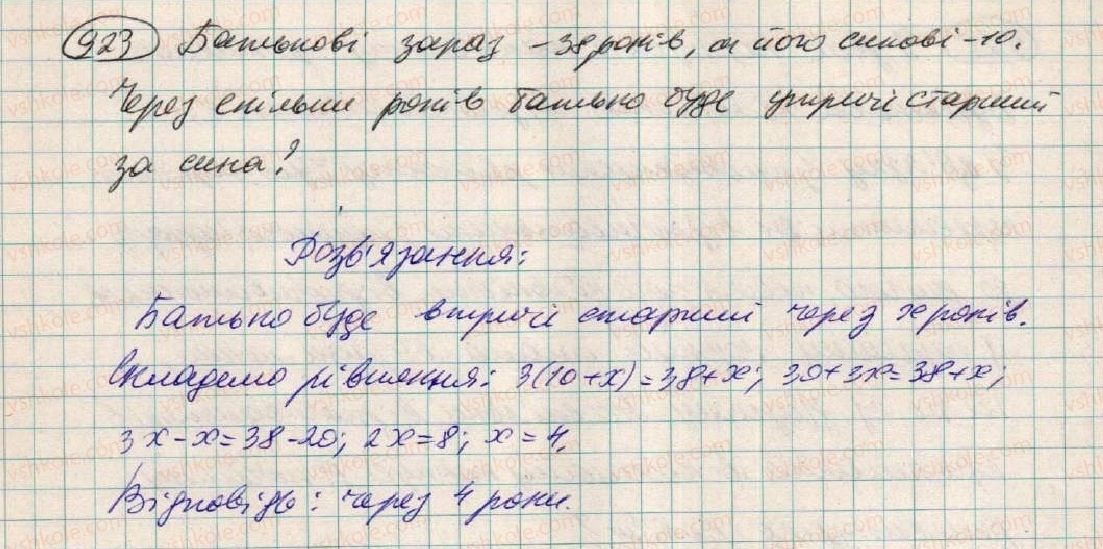 923 Батькові зараз - 38 років, а його синові - 10.
Через скільки років батько буде утричі старший
за сина?
Розв'язання:
Батько буде втричі старший через x років.
Складемо рівняння: 3(10+x)=38+x; 30+3x=38+x;
3x-x=38-20; 2x=8; x=4.
Відповідь: через 4 роки.